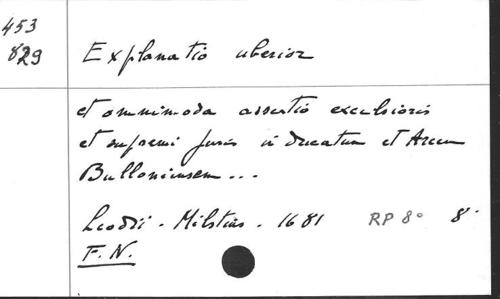 453
829
Explanatio uberior
et omnimoda assertio excelsioris
et supremi juris in ducatum et Arcem
Bulloniensem...
Leodii - Milstius - 1681 RP 8° 8°
F. N.